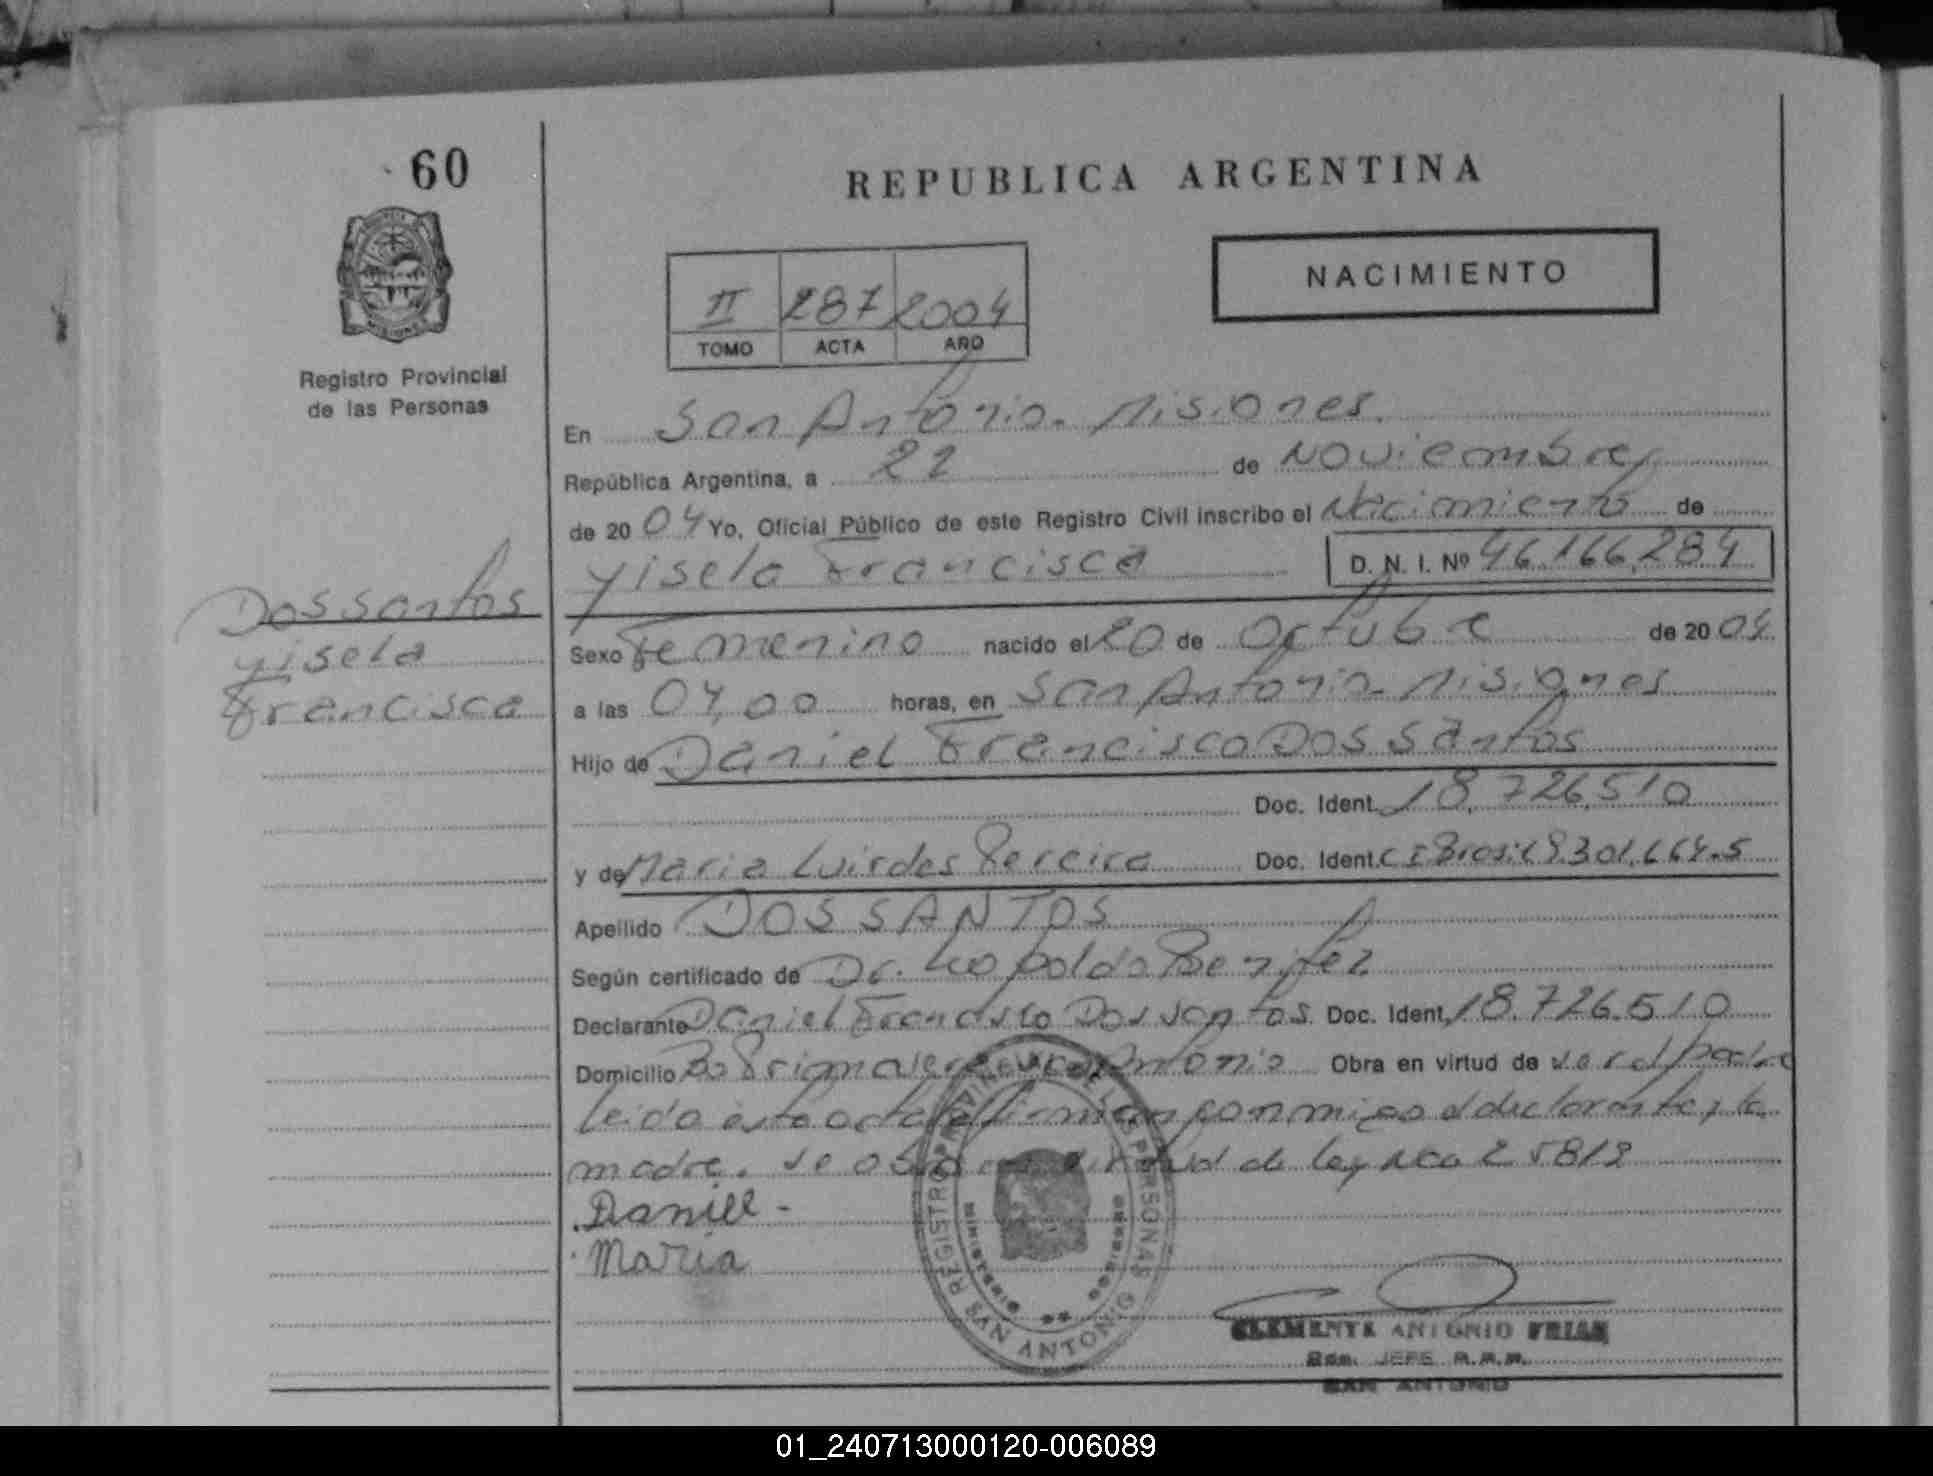 60
REPUBLICA ARGENTINA
NACIMIENTO
II 287 2004
TOMO ACTA AÑO
Registro Provincial
de las Personas
En San Antonio - Misiones.
República Argentina, a 22 de Noviembre
de 20 04 Yo, Oficial Público de este Registro Civil inscribo el Nacimiento de
Yisela Francisca D. N. I. Nº 46.166.284
Dos santos
Yisela
Francisca
Sexo Femenino nacido el 20 de Octubre de 20 04
a las 04,00 horas, en San Antonio - Misiones
Hijo de Daniel Francisco Dos Santos
Doc. Ident. 18.726.510
y de Maria Lurdes Pereira Doc. Ident. CI Brasil 9.301.664-5
Apellido DOS SANTOS
Según certificado de Dr. Leopoldo Benitez
Declarante Daniel Francisco Dos Santos Doc. Ident. 18.726.510
Domicilio Bo Primavera San Antonio Obra en virtud de ser el padre
leida esta acta firman conmigo el declarante y la
madre. se obra en virtud de ley Nro 25812
Daniel -
Maria
REGISTRO PROVINCIAL DE LAS PERSONAS
SAN ANTONIO
CLEMENTE ANTONIO FRIAS
JEFE R.P.P.
SAN ANTONIO
01_240713000120-006089